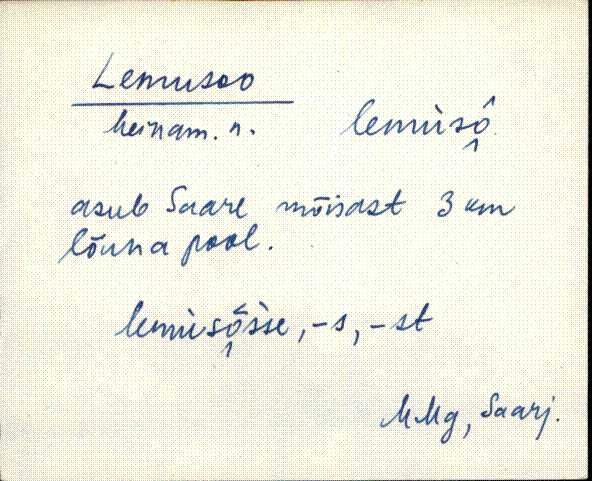 Lemusoo
heinam. n. lemùsô̭
asub Saare mõisast 3 km
lõuna pool.
lemùsô̭sse, -s, -st
MMg, Saarj.